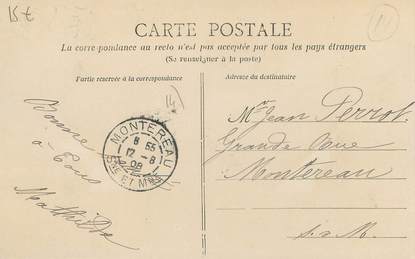 15 €
11
CARTE POSTALE
La correspondance au recto n'est pas acceptée par tous les pays étrangers
(Se renseigner à la poste)
Partie réservée à la correspondance
Adresse du destinataire
14
MONTEREAU
8 55
12 - 8
08
SNE ET MNE
à Tous
Mathilde
Mr Jean Perrot
Grande Rue
Montereau
S-&-M.